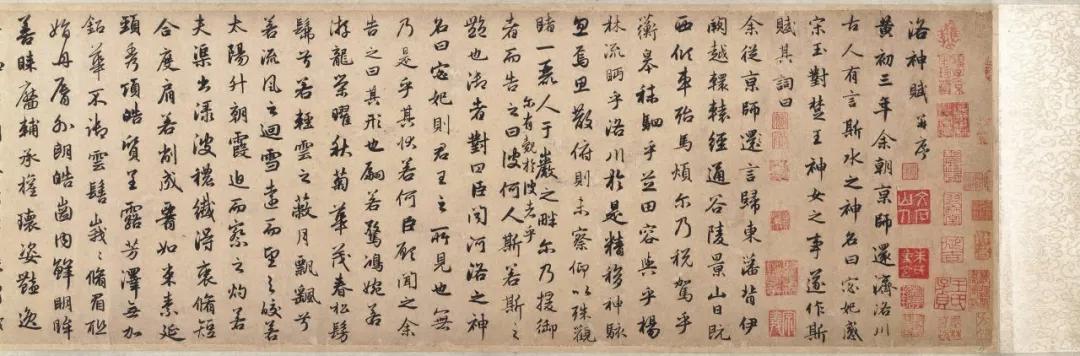 洛神賦 并序
黃初三年余朝京師還濟洛川
古人有言斯水之神名曰宓妃感
宋玉對楚王神女之事遂作斯
賦其詞曰
余從京師還言歸東藩背伊
闕越轘轅經通谷陵景山日旣
西傾車殆馬煩尔乃稅駕乎
蘅皋秣駟乎芝田容與乎楊
林流眄乎洛川於是精移神駭
忽焉思散俯則未察仰以殊觀
睹一麗人于巖之畔尔乃援御
者而告之曰尔有觀於彼者乎彼何人斯若斯之
豔也御者對曰臣聞河洛之神
名曰宓妃則君王之所見也無
乃是乎其狀若何臣願聞之余
告之曰其形也翩若驚鴻婉若
游龍榮曜秋菊華茂春松髣
髴兮若輕雲之蔽月飄颻兮
若流風之迴雪遠而望之皎若
太陽升朝霞迫而察之灼若
夫渠出淥波穠纖得衷脩短
合度肩若削成腰如束素延
頸秀項皓質呈露芳澤無加
鉛華不御雲髻峩〻脩眉聯
娟丹脣外朗皓齒內鮮明眸
善睞靨輔承權瓌姿豔逸